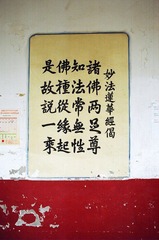 妙法蓮華經偈
諸佛兩足尊
知法常無性
佛種從緣起
是故說一乘